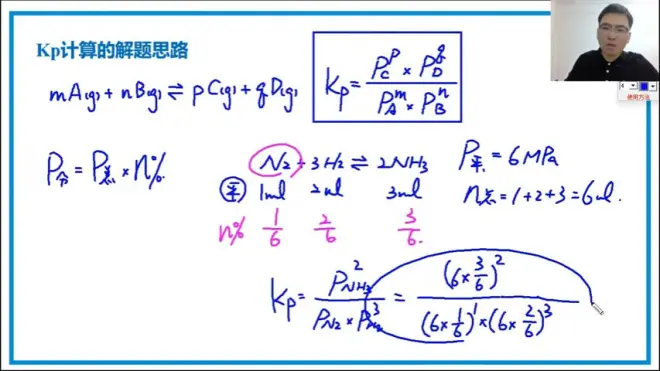 Kp计算的解题思路
mA(g)+nB(g)⇌pC(g)+qD(g)
Kp=(P_C^p×P_D^q)/(P_A^m×P_B^n)
P分=P总×n%
N2+3H2⇌2NH3
P平=6MPa
平 1mol 2mol 3mol
n总=1+2+3=6mol.
n% 1/6 2/6 3/6.
Kp=P_NH3^2/(P_N2×P_H2^3)=(6×3/6)^2/((6×1/6)^1×(6×2/6)^3)
4
使用方法